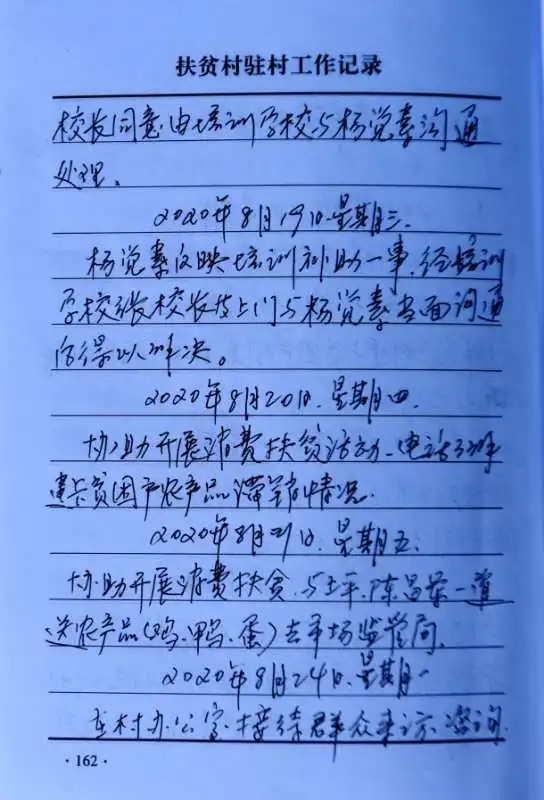 扶贫村驻村工作记录
校长同意由培训学校与杨觉素沟通
处理。
2020年8月19日.星期三.
杨觉素反映培训补助一事,经培训
学校张校长亲上门与杨觉素当面沟通
后得以解决。
2020年8月20日.星期四.
协助开展消费扶贫活动,电话了解
建卡贫困户农产品滞销情况.
2020年8月21日.星期五.
协助开展消费扶贫.与王平.陈昌荣一道
送农产品(鸡.鸭.蛋)去市场监管局.
2020年8月24日.星期一
在村办公室.接待群众来访.咨询.
·162·